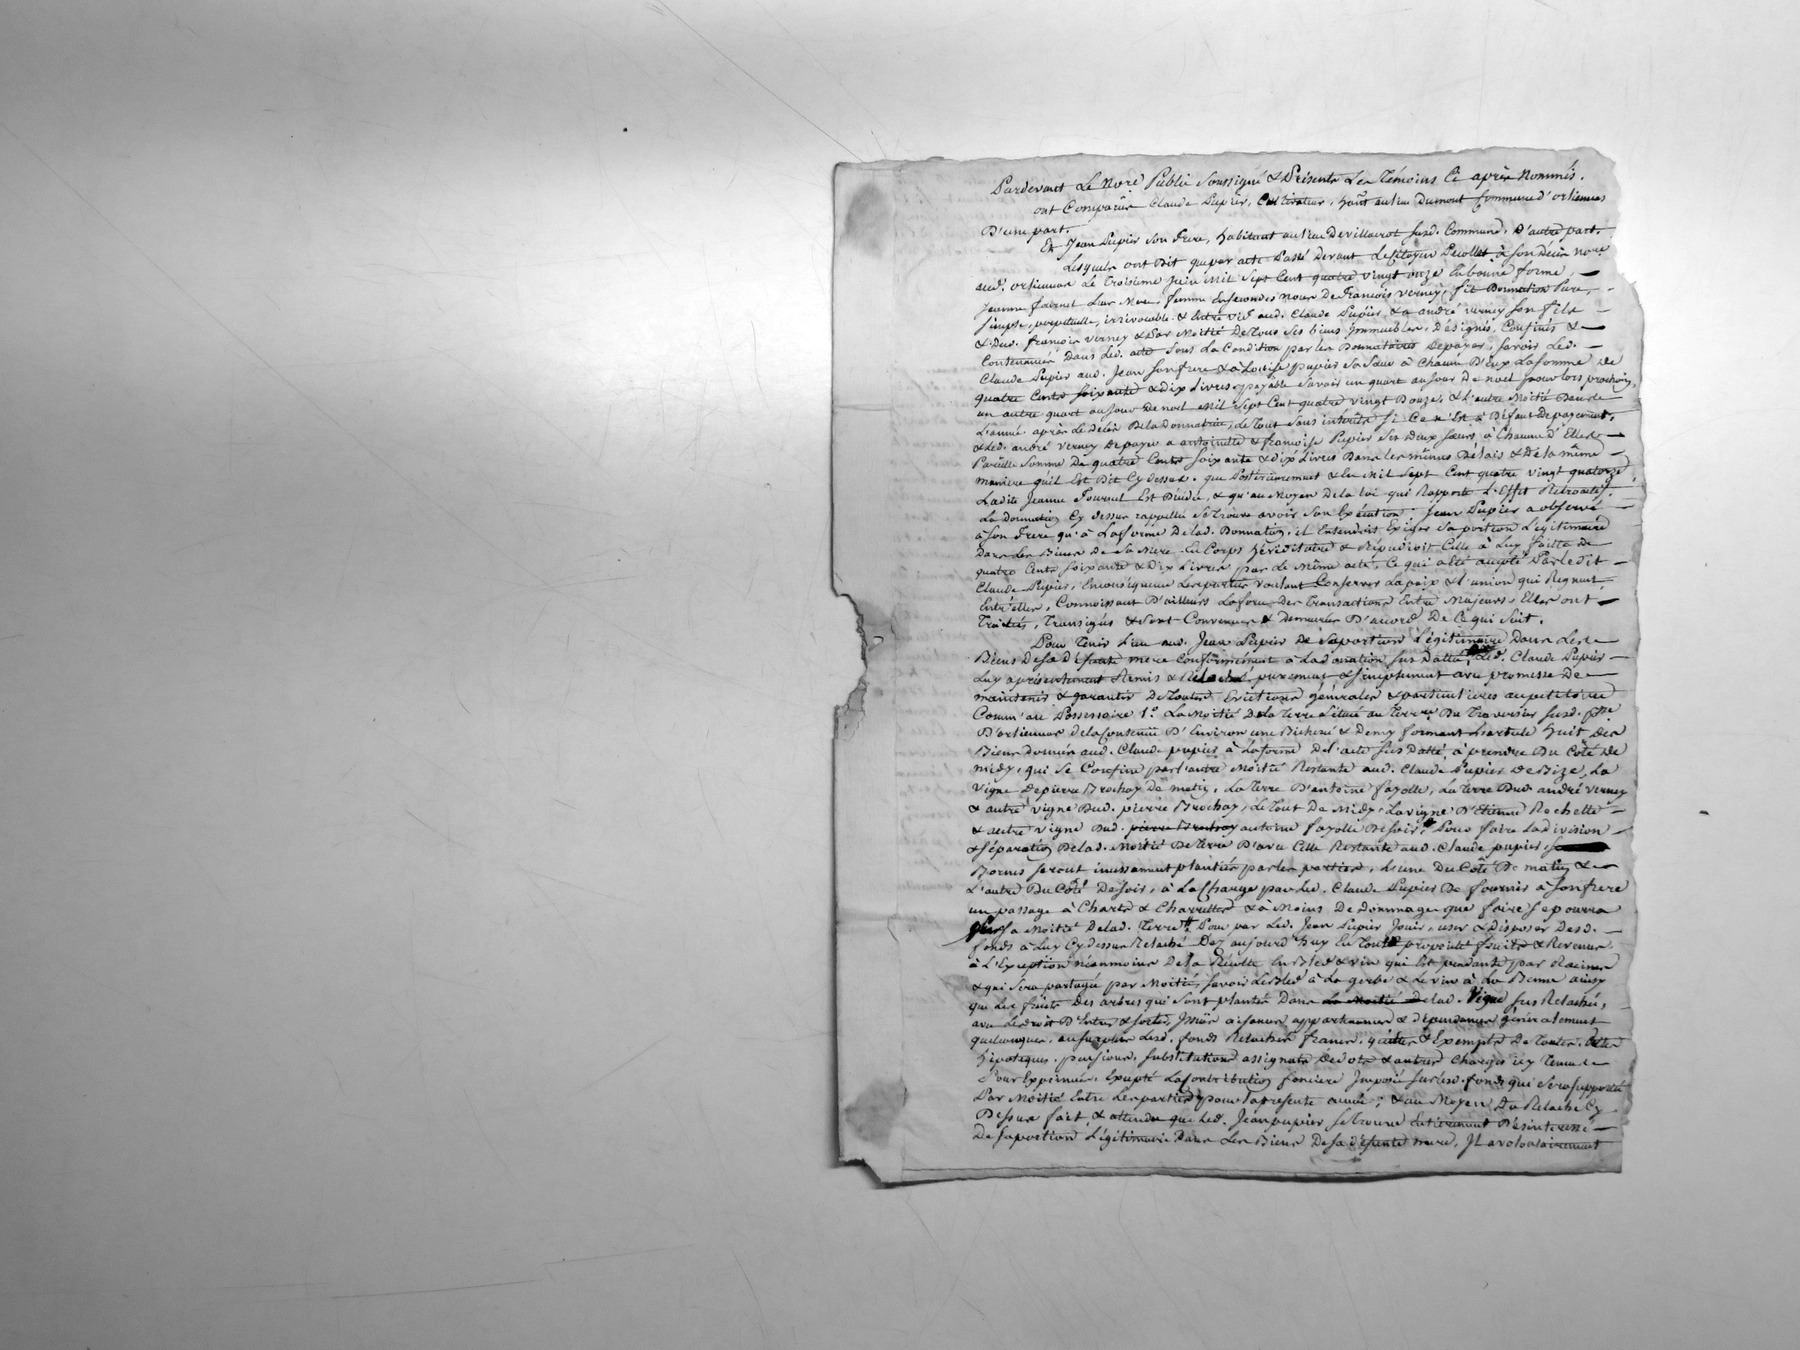 Pardevant Le No.re Public Soussigné & Présents Les Témoins Ci après Nommés.
ont Comparûs Claude Pupier, Cultivateur, hant au lieu Dumont Commune d'orliennas
D'une part.
Et Jean Pupier Son frere, habitant au lieu de villairot susd. Commune. D'autre part.
Lesquels ont Dit que par acte Passé Devant Le Citoyen à son Décès no.re
aud. orliennas Le Troisieme Juin Mil Sept Cent quatre vingt onze En bonne forme,
Jeanne fournel Leur Mere, femme En secondes noces De françois verney, fit Donnation Pure,
Simple, perpetuelle, irrévocable & Entre vifs aud. Claude Pupier & a andré verney Son fils
& Dud. françois verney & Par Moitié De tous Ses biens Jmmeubles, Désignés, Confinés &
Contenancés Dans Led. acte Sous La Condition par les Donnataires De payer, Savoir Led.
Claude Pupier aud. Jean Son frere & à Louise pupier Sa Sœur à Chacun D'Eux La somme de
quatre Cents Soixante & Dix Livres, payable Savoir un quart au Jour De noel pour lors prochain,
un autre quart au Jour De noel Mil Sept Cent quatre vingt Douze, & L'autre Moitié Dans
L'année après Le Décès De la Donnatrice, Le tout Sans intérêts Si Ce n'Est à Défaut De payement,
& Led. andré Verney De payer a antoinette & françoise Pupier Ses Deux Sœurs, à Chacune d'Elles
Pareille Somme De quatre Cents Soixante & Dix Livres Dans les mêmes Délais & De la même
maniere qu'il Est Dit Cy Dessus. que Postérieurement & En Mil Sept Cent quatre vingt quatorze
Ladite Jeanne Fournel Est Décédée, & qu'au Moyen De la loi qui Rapporte L'Effet Rétroactif,
La Donnation Cy Dessus rappellée Se trouve avoir Son Exécution. Jean Pupier a observé
à Son frere qu'à La forme De lad. Donnation, il Entendoit Exiger Sa portion Légitimaire
Dans Les Biens De Sa Mere En Corps héréditaire & Répudioit Celle à Luy faitte De
quatre Cents Soixante & Dix Livres par Le Même acte, Ce qui a été accepté Par ledit
Claude Pupier, En conséquence Les parties voulant Conserver La paix & L'union qui Regnent
Entr'elles, Connoissant D'ailleurs La force Des Transactions Entre Majeurs, Elles ont
Traités, Transigés & Sont Convenues & Demeurées D'accord De Ce qui Suit.
Pour Tenir Lieu aud. Jean Pupier de Sa portion Légitimaire Dans Les
Biens De Sa Défunte mere Conformément à La donation Sus Datté, Led. Claude Pupier
Luy a présentement Remis & Relaché purement & Simplement avec promesse De
maintenir & garantir De toutes Evictions générales & particulieres au petitoire
Comm'au Possessoire 1.° La Moitié De la Terre Située au Terr.re Du Traversier Susd. C.ne
D'orliennas De la Contenüe D'Environ une Bicherée & Demy formant L'article huit Des
Biens Donnés aud. Claude pupier à La forme De l'acte Sus Datté, à prendre Du Côté De
midy, qui Se Confine par l'autre Moitié Restante aud. Claude Pupier De Bize, La
vigne De pierre Brochay De matin, La Terre D'antoine fayolle, La Terre Dud. andré verney
& autre vigne Dud. pierre Brochay, Le Tout De Midy, La vigne D'Etienne Rochette
& autre vigne Dud. pierre Brochay antoine fayolle De Soir. Pour faire La division
& Séparation De lad. Moitié De Terre D'avec Celle Restante aud. Claude pupier,
Bornes Seront incessament plantées par les parties, L'une Du Côté De matin &
L'autre Du Côté De Soir, à La Charge par Led. Claude Pupier De fournir à Son frere
un passage à Charts & Charrettes & à Moins De Dommage que faire Se pourra
Sur Sa Moitié De lad. Terre, Pour par Led. Jean Pupier Jouir, user & Disposer Desd.
fonds à Luy Cy Dessus Relaché Dez aujourd'huy En Toute propriété fruits & Revenus
à L'Exception néanmoins De la Récolte En Bled & vin qui Est pendante par Racines
& qui Sera partagée par Moitié, Savoir Le Bled à La gerbe & Le vin à La Benne ainsy
que Les fruits Des arbres qui Sont plantés Dans la Moitié De lad. Vigne Sus Relaché,
avec Les droits D'Entrée & Sortie, Jssües aisances appartenances & Dépendances généralement
quelconques, au Surplus Lesd. fonds Relachés francs, quittes & Exempts De Toutes
hipoteques, pensions, Substitutions assignats De dots & autres Charges icy Tenues
Pour Exprimées, Excepté La Contribution fonciere Jmposée Sur lesd. fonds qui Sera Supportée
Par Moitié Entre Les parties pour La présente année; & au Moyen Du Relaché Cy
Dessus fait, & attendu que Led. Jean pupier Se trouve Entierement Désintéressé
De Sa portion Légitimaire Dans Les Biens De Sa Défunte mere, Jl a volontairement